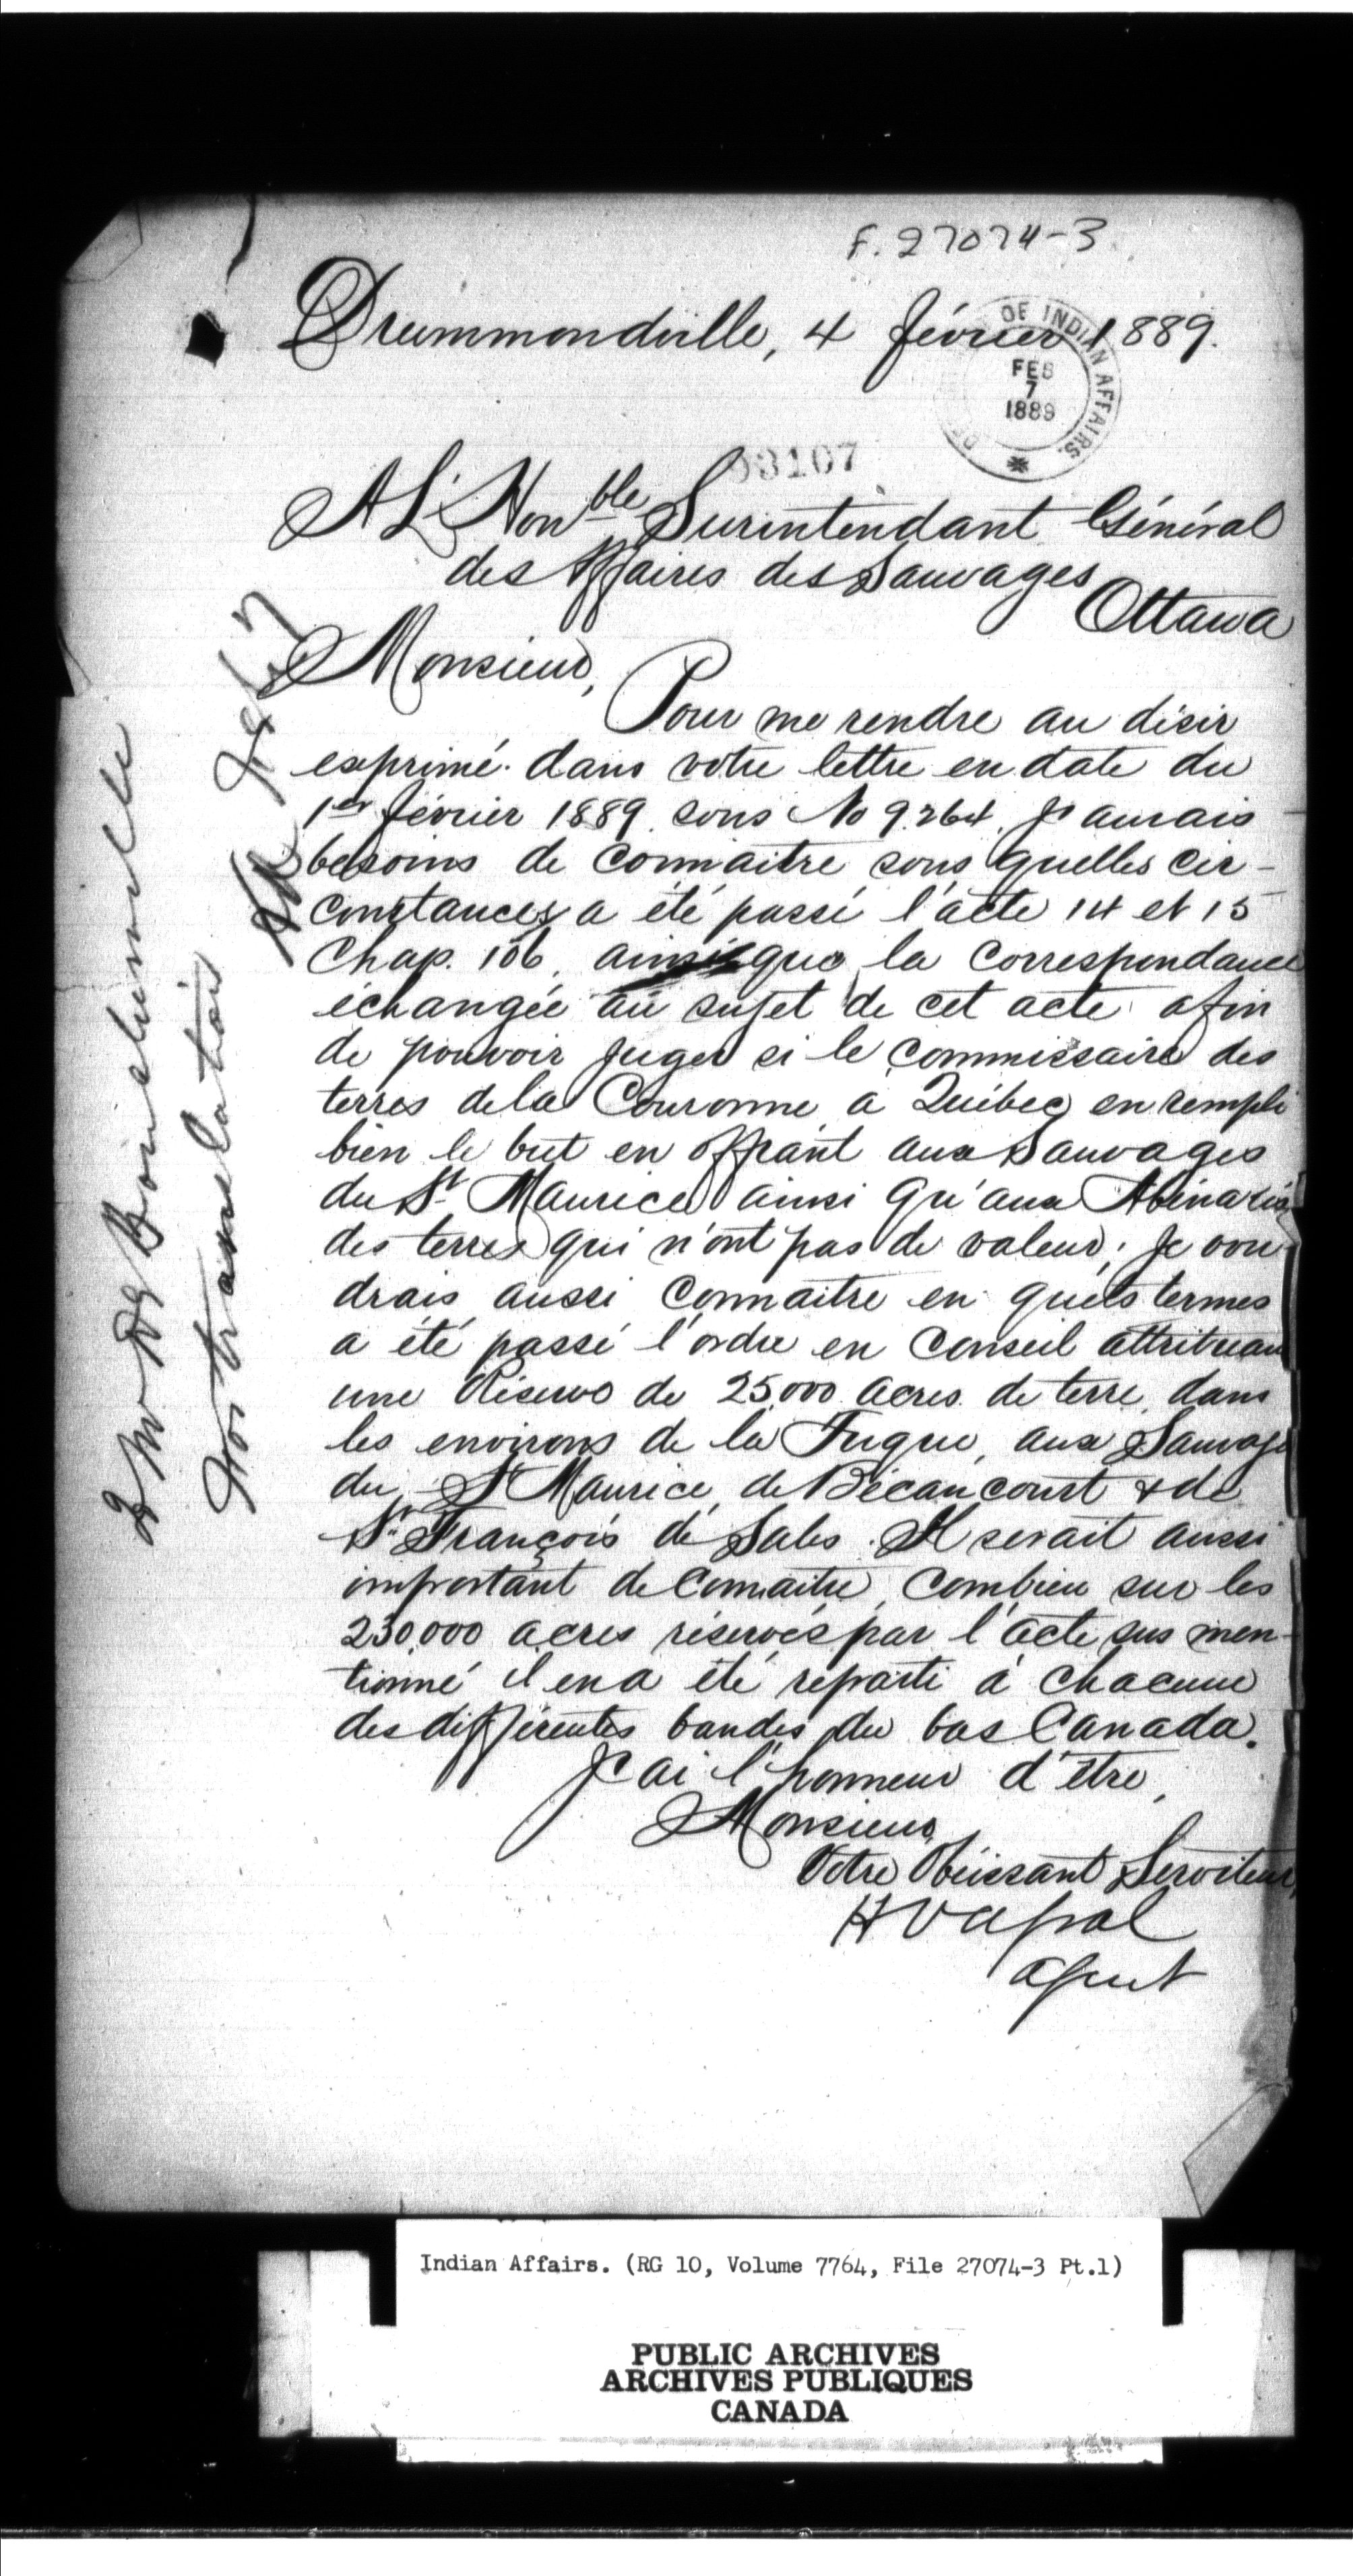 F. 27074-3
Drummondville, 4 février 1889.
OF INDIAN AFFAIRS.
FEB
7
1889
93107
A L'Honble Surintendant Général
des Affaires des Sauvages
Ottawa
Monsieur,
Pour me rendre au désir
exprimé dans votre lettre en date du
1er février 1889 sous No 9.264, J'aurais
besoins de connaitre sous quelles cir-
constances a été passé l'acte 14 et 15
Chap. 106, ainsi que la correspondance
échangée au sujet de cet acte afin
de pouvoir juger si le commissaire des
terres de la Couronne a Québec en rempli
bien le but en offrant aux Sauvages
du St Maurice ainsi qu'aux Abénakis
des terres qui n'ont pas de valeur; Je vou-
drais aussi connaitre en quels termes
a été passé l'ordre en Conseil attribuan
une Réserve de 25.000 acres de terre dans
les environs de la Tuque, aux Sauvage
du St Maurice, de Bécancourt & de
St François de Sales. Il serait aussi
important de connaitre, combien sur les
230,000 acres réservés par l'acte sus men-
tionné il en a été réparti à chacune
des différentes bandes du bas Canada.
J'ai l'honneur d'être,
Monsieur,
Votre Obéissant Serviteur,
H Vassal
agent
For translation
Indian Affairs. (RG 10, Volume 7764, File 27074-3 Pt.1)
PUBLIC ARCHIVES
ARCHIVES PUBLIQUES
CANADA